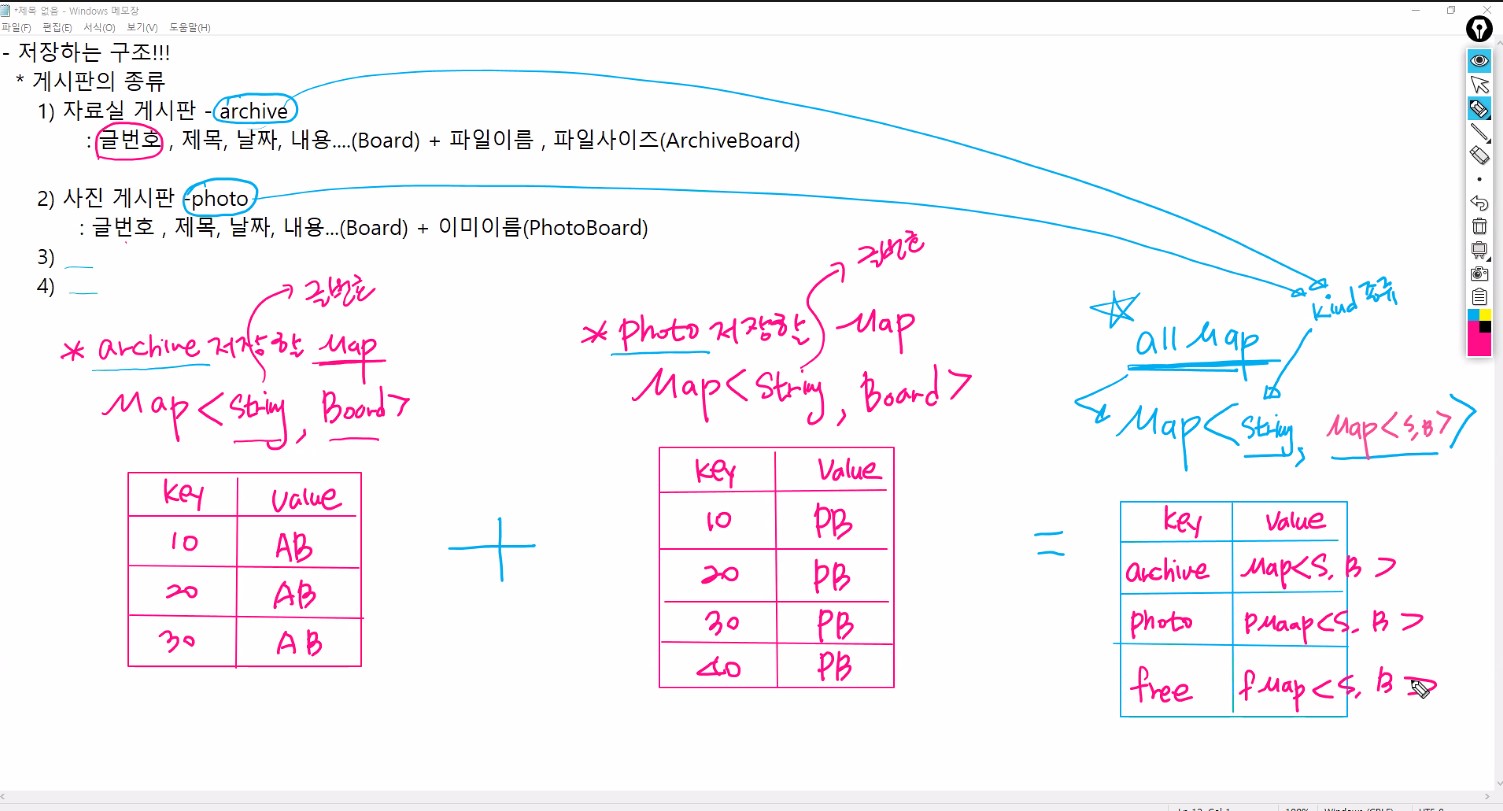 *제목 없음 - Windows 메모장
파일(F) 편집(E) 서식(O) 보기(V) 도움말(H)
- 저장하는 구조!!!
* 게시판의 종류
1) 자료실 게시판 - archive
: 글번호 , 제목, 날짜, 내용....(Board) + 파일이름 , 파일사이즈(ArchiveBoard)
2) 사진 게시판 -photo
: 글번호 , 제목, 날짜, 내용...(Board) + 이미이름(PhotoBoard)
3)
4)
글번호
* archive 저장할 Map
Map<String, Board>
key value
10 AB
20 AB
30 AB
+
글번호
* Photo 저장할 Map
Map<String, Board>
key Value
10 PB
20 PB
30 PB
40 PB
=
kind 종류
☆ all Map
Map<String, Map<S,B>>
key value
archive Map<S, B>
photo PMaap<S, B>
free fMap<S, B>
Ln 12, Col 1 100% Windows (CRLF) UTF-8